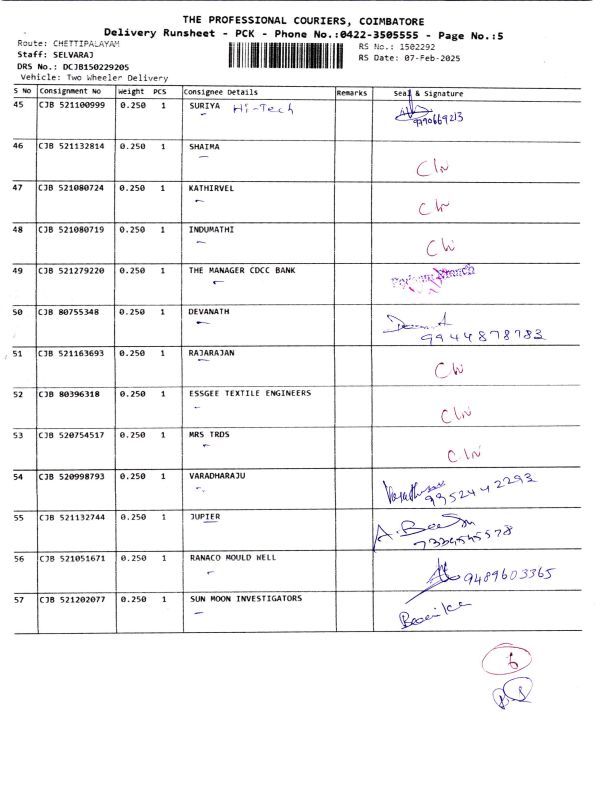 THE PROFESSIONAL COURIERS, COIMBATORE
Delivery Runsheet - PCK - Phone No.:0422-3505555 - Page No.:5
Route: CHETTIPALAYAM
Staff: SELVARAJ
DRS No.: DCJB150229205
Vehicle: Two Wheeler Delivery
RS No.: 1502292
RS Date: 07-Feb-2025
S No Consignment No Weight PCS Consignee Details Remarks Seal & Signature
45 CJB 521100999 0.250 1 SURIYA Hi-Tech
46 CJB 521132814 0.250 1 SHAIMA C/N
47 CJB 521080724 0.250 1 KATHIRVEL C/N
48 CJB 521080719 0.250 1 INDUMATHI C/N
49 CJB 521279220 0.250 1 THE MANAGER CDCC BANK Branch
50 CJB 80755348 0.250 1 DEVANATH 9944878783
51 CJB 521163693 0.250 1 RAJARAJAN C/N
52 CJB 80396318 0.250 1 ESSGEE TEXTILE ENGINEERS C/N
53 CJB 520754517 0.250 1 MRS TRDS C/N
54 CJB 520998793 0.250 1 VARADHARAJU 9952442293
55 CJB 521132744 0.250 1 JUPIER
56 CJB 521051671 0.250 1 RANACO MOULD WELL 9489603365
57 CJB 521202077 0.250 1 SUN MOON INVESTIGATORS
6